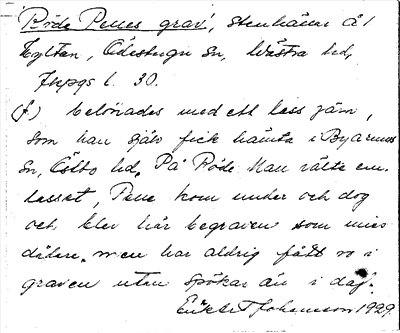 'Röde Pelles grav', stenhäll å l
Hyltan, Ödestugu Sn, Västra hd,
Jkpgs l. 30.
(f) belönades med ett lass järn,
som han själv fick hämta i Byarums
Sn, Östbo hd. På Röde Man välte em.
lasset, Pelle kom under och dog
och blev här begraven som miss
dådare, men har aldrig fått ro i
graven utan spökar än i dag.
Johansson 1929.